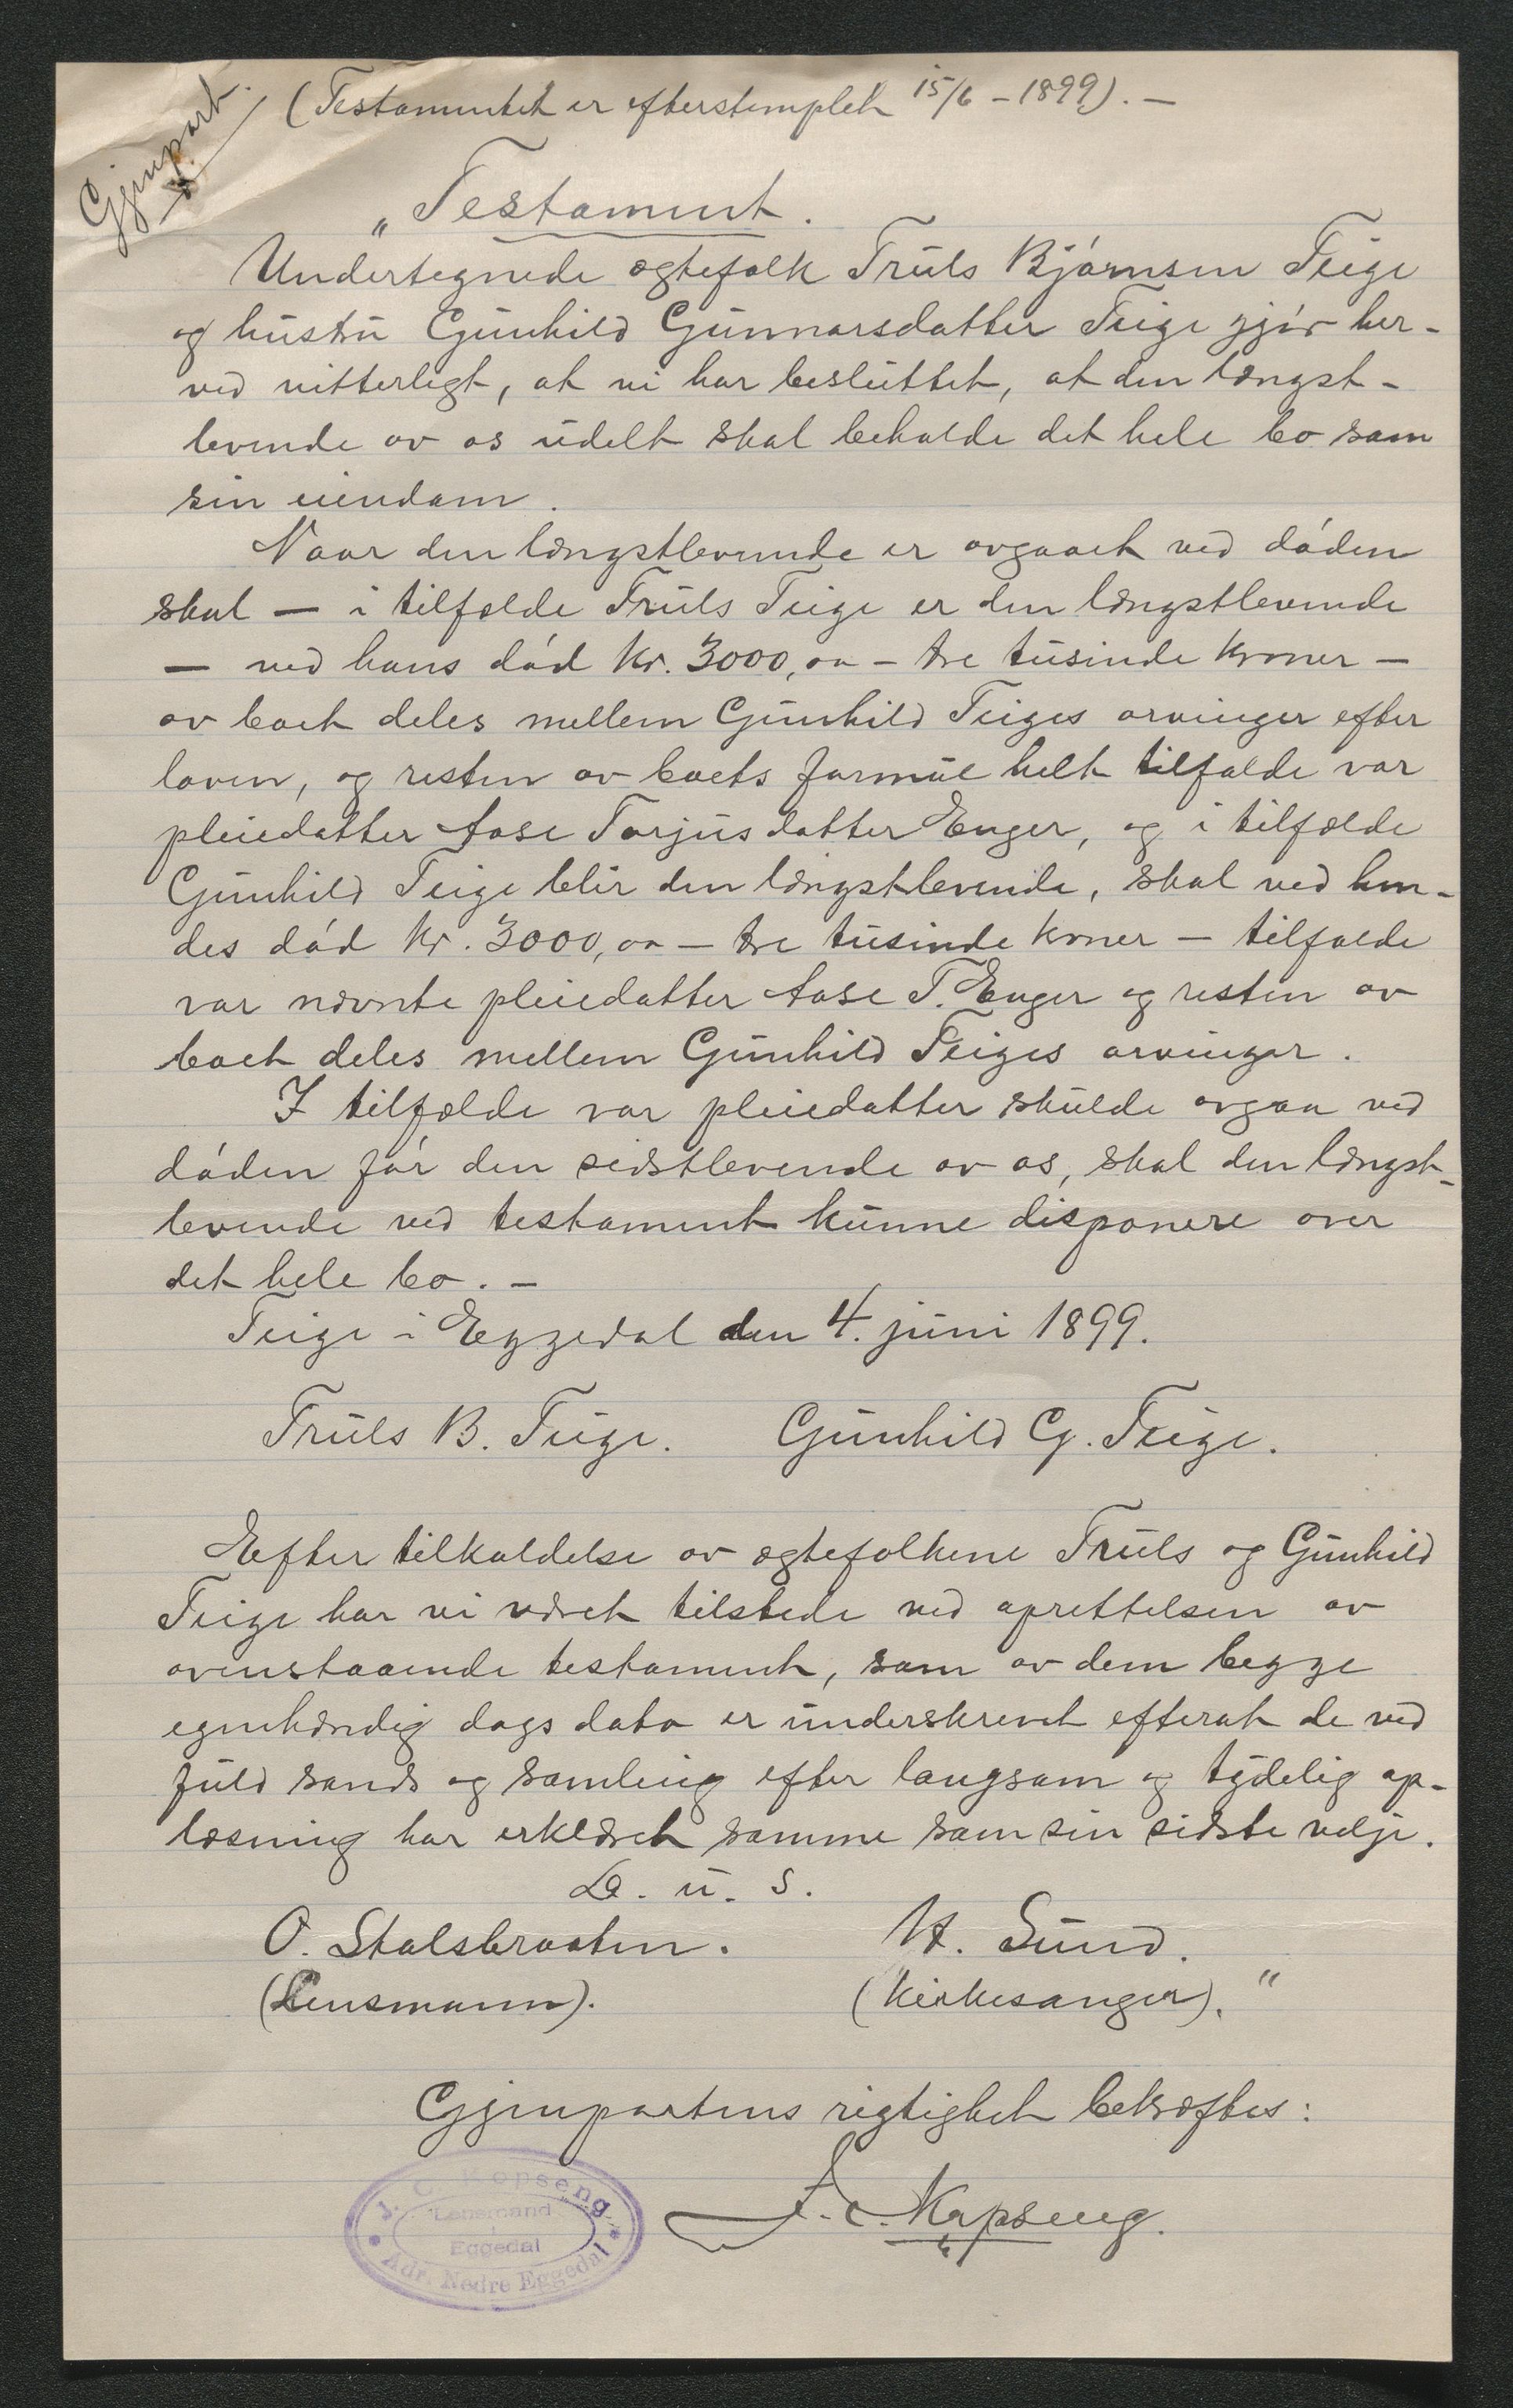 Gjenpart.
(Testamentet er efterstemplet 15/6 - 1899). -
„Testament.
Undertegnede ægtefolk Truls Bjørnsen Teige
og hustru Gunhild Gunnarsdatter Teige gjør her-
ved vitterligt, at vi har besluttet, at den længst-
levende av os udelt skal beholde det hele bo som
sin eiendom.
Naar den længstlevende er avgaaet ved døden
skal — i tilfælde Truls Teige er den længstlevende
— ved hans død kr. 3000,00 — tre tusinde kroner —
av boet deles mellem Gunhild Teiges arvinger efter
loven, og resten av boets formue helt tilfalde vor
pleiedatter Aase Torjusdatter Enger, og i tilfælde
Gunhild Teige blir den længstlevende, skal ved hen-
des død kr. 3000,00 — tre tusinde kroner — tilfalde
vor nævnte pleiedatter Aase T. Enger og resten av
boet deles mellem Gunhild Teiges arvinger.
I tilfælde vor pleiedatter skulde avgaa ved
døden før den sidstlevende av os, skal den længst-
levende ved testament kunne disponere over
det hele bo. -
Teige i Eggedal den 4. juni 1899.
Truls B. Teige. Gunhild G. Teige.
Efter tilkaldelse av ægtefolkene Truls og Gunhild
Teige har vi været tilstede ved oprettelsen av
ovenstaaende testament, som av dem begge
egenhændig dags dato er underskrevet efterat de ved
fuld sands og samling efter langsom og tydelig op-
læsning har erklæret samme som sin sidste velje.
D. u. s.
O. Skalsbraaten. H. Sund.
(Lensmann). (Kirkesanger)."
Gjenpartens rigtighet bekræftes:
J. C. Kopseng.
J. C. Kopseng
Lensmand
i
Eggedal
Adr. Nedre Eggedal